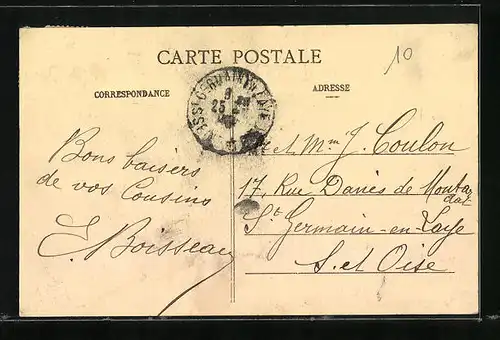 CARTE POSTALE
10
CORRESPONDANCE
ADRESSE
ST GERMAIN EN LAYE
25
Bons baisers
de vos Cousins
E. Boisseau
et Mme J. Coulon
17, Rue Danès de Montar
dat
St Germain-en-Laye
S. et Oise